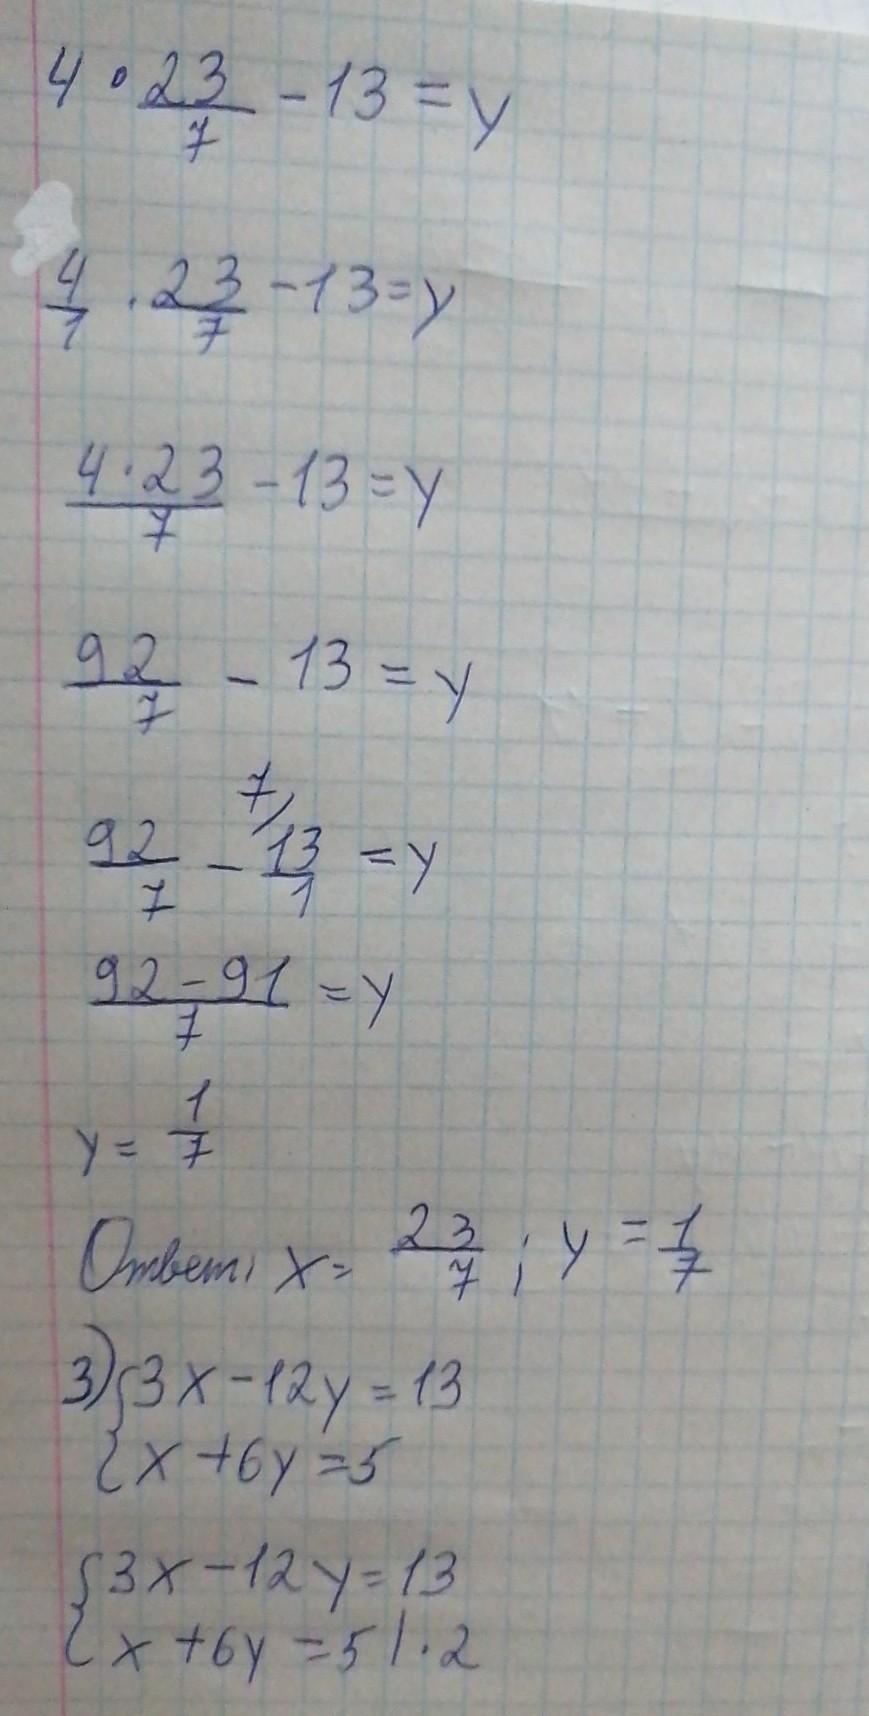 4 · 23/7 - 13 = y
4/1 · 23/7 - 13 = y
4 · 23/7 - 13 = y
92/7 - 13 = y
92/7 - 7/ 13/1 = y
92 - 91/7 = y
y = 1/7
Ответ: x = 23/7 ; y = 1/7
3) { 3x - 12y = 13
{ x + 6y = 5
{ 3x - 12y = 13
{ x + 6y = 5 | · 2